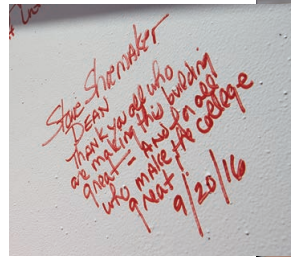 Steve Shoemaker
DEAN
Thank you all who
are making this building
great - And for all
who make the college
great!
9/20/16